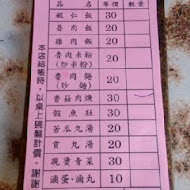 品名 單價 數量
蝦仁飯 30
香肉飯 20
雞肉飯 20
魯肉米粉 20
(炒米粉)
魯肉麵 20
(炒麵)
香菇肉焿 30
虱魚肚 30
苦瓜丸湯 20
貢丸湯 20
燙青菜 30
滷蛋·滷丸 10
本店結帳時,以桌上碼牌計價。謝謝